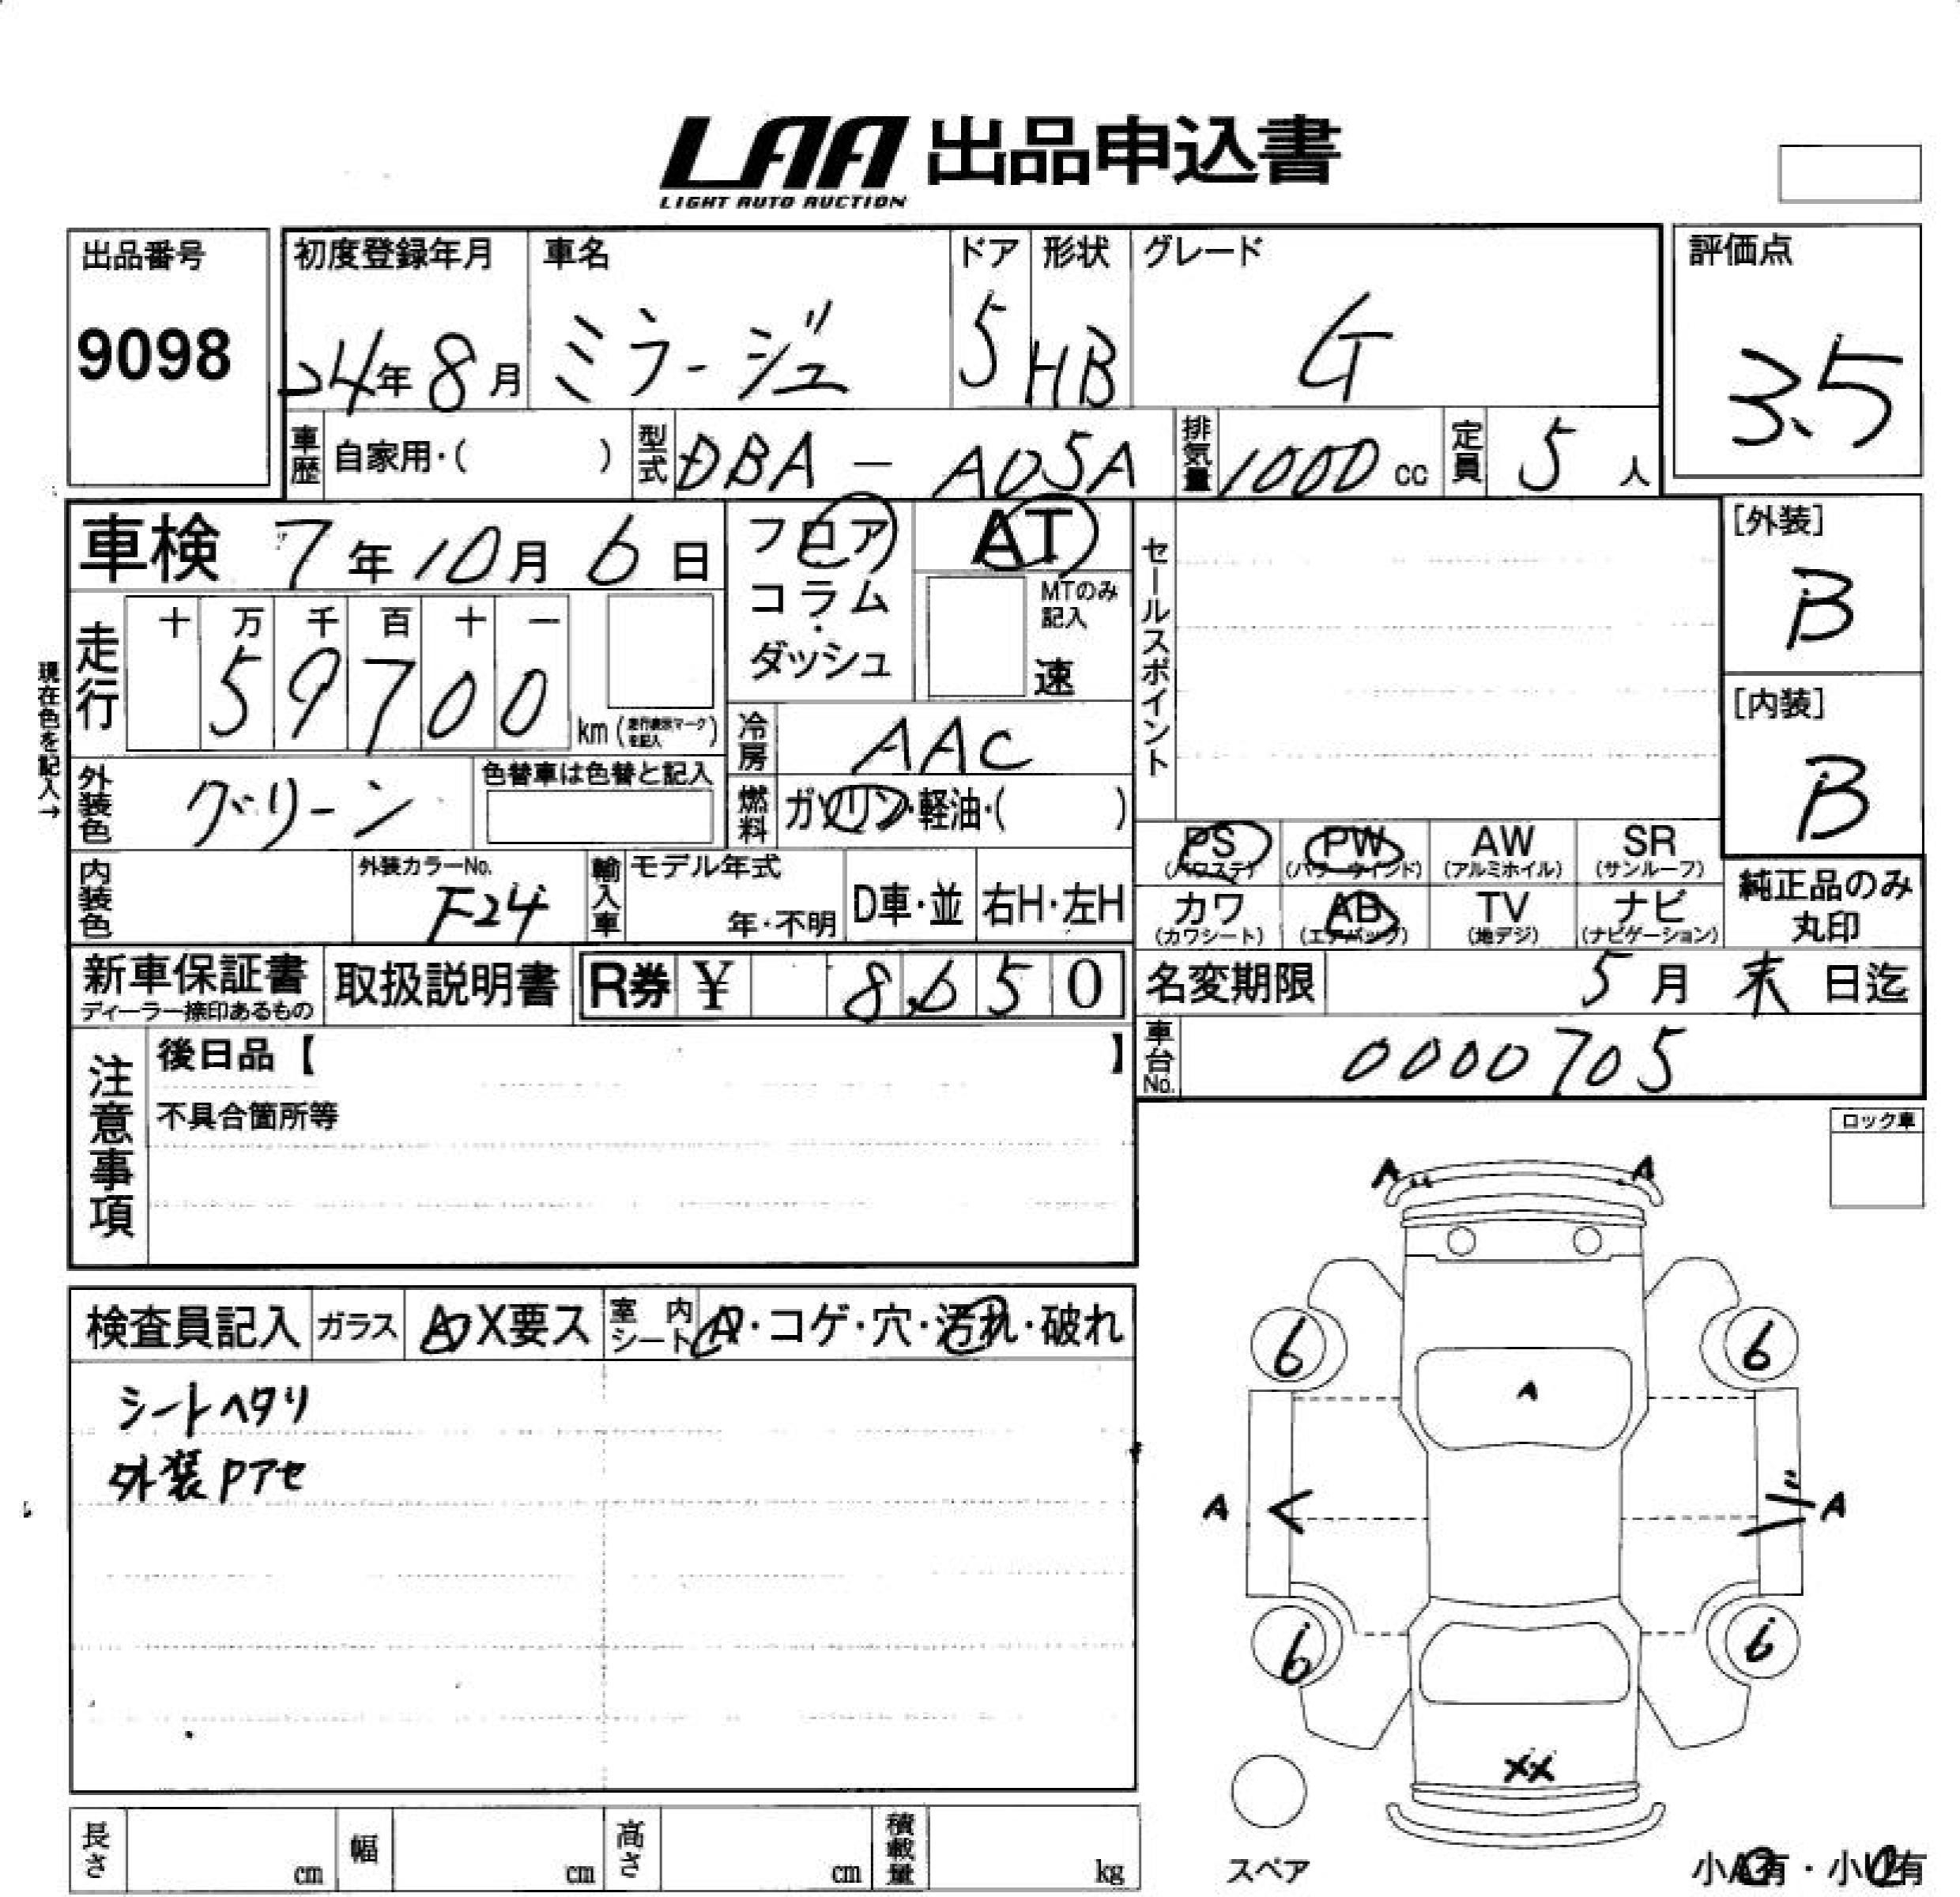 LAA 出品申込書
LIGHT AUTO AUCTION
出品番号
9098
初度登録年月
24年8月
車名
ミラージュ
ドア
5
形状
HB
グレード
G
評価点
3.5
車歴 自家用・( )
型式 DBA - A05A
排気量 1000 cc
定員 5 人
車検 7年10月6日
フロア
コラム
・
ダッシュ
AT
MTのみ
記入
速
セールスポイント
[外装]
B
[内装]
B
現在色を記入→
走行
十 万 千 百 十 一
5 9 7 0 0
km (走行表示マークを記入)
冷房 AAC
外装色 グリーン
色替車は色替と記入
燃料 ガソリン・軽油・( )
PS AW SR
(パワステ) (パワーウインド) (アルミホイル) (サンルーフ)
PW
内装色
外装カラーNo.
F24
輸入車
モデル年式
年・不明
D車・並
右H・左H
カワ AB TV ナビ
(カワシート) (エアバッグ) (地デジ) (ナビゲーション)
純正品のみ
丸印
新車保証書
ディーラー捺印あるもの
取扱説明書
R券 ¥ 8,650
名変期限 5月 末 日迄
車台No. 0000705
注意事項
後日品【 】
不具合箇所等
ロック車
検査員記入
ガラス
A X要ス
室内
シート
A・コゲ・穴・汚れ・破れ
シートヘタリ
外装Pアセ
A A
6 6
A
A A
6 6
XX
スペア
小A有・小U有
長さ cm
幅 cm
高さ cm
積載量 kg